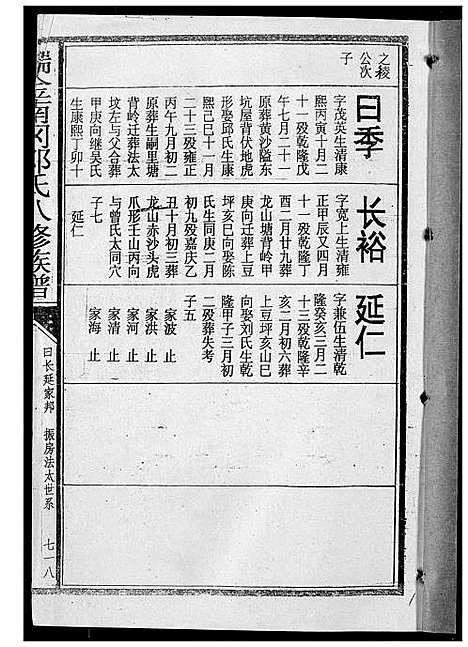 之稜公次子
曰季
字茂英生清康
熙丙寅十月二
十一殁乾隆戊
午七月二十一
原葬黄沙隘东
坑屋背伏地虎
形娶邱氏生康
熙己巳十一月
二十三殁雍正
丙午九月初二
原葬生嗣里塘
背岭迁葬法太
坟左与父合葬
甲庚向继吴氏
生康熙丁卯十
长裕
字宽上生清雍
正甲辰又四月
十一殁乾隆丁
酉二月廿九葬
龙山塘背岭甲
庚向迁葬上豆
坪亥巳向娶陈
氏生同庚二月
初九殁嘉庆乙
丑十月初三葬
龙山赤沙头虎
爪形壬山丙向
与曾氏太同穴
子七
延仁
延仁
字兼伍生清乾
隆癸亥三月二
十三殁乾隆辛
亥二月初六葬
上豆坪亥山巳
向娶刘氏生乾
隆甲子三月初
二殁葬失考
子五
家波 止
家洪 止
家河 止
家清 止
家海 止
氏八修族谱
曰长延家邦 振房法太世系 七一八